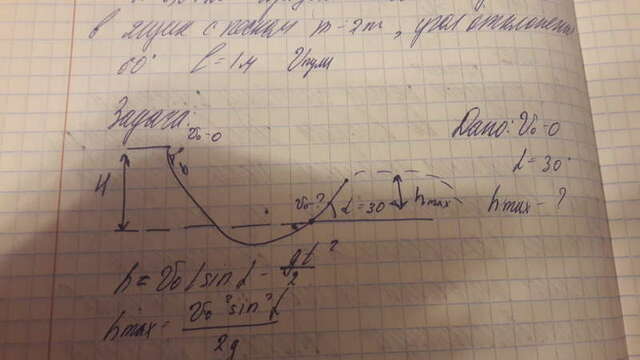 в ящик с песком m = 2m, угол отклонения
60° l = 1м υпули
Задача:
υ₀=0
Дано: υ₀=0
α = 30°
hmax - ?
H
υ₀-?
α = 30
hmax
h = υ₀ t sin α - gt²/2
hmax = υ₀² sin² α / 2g